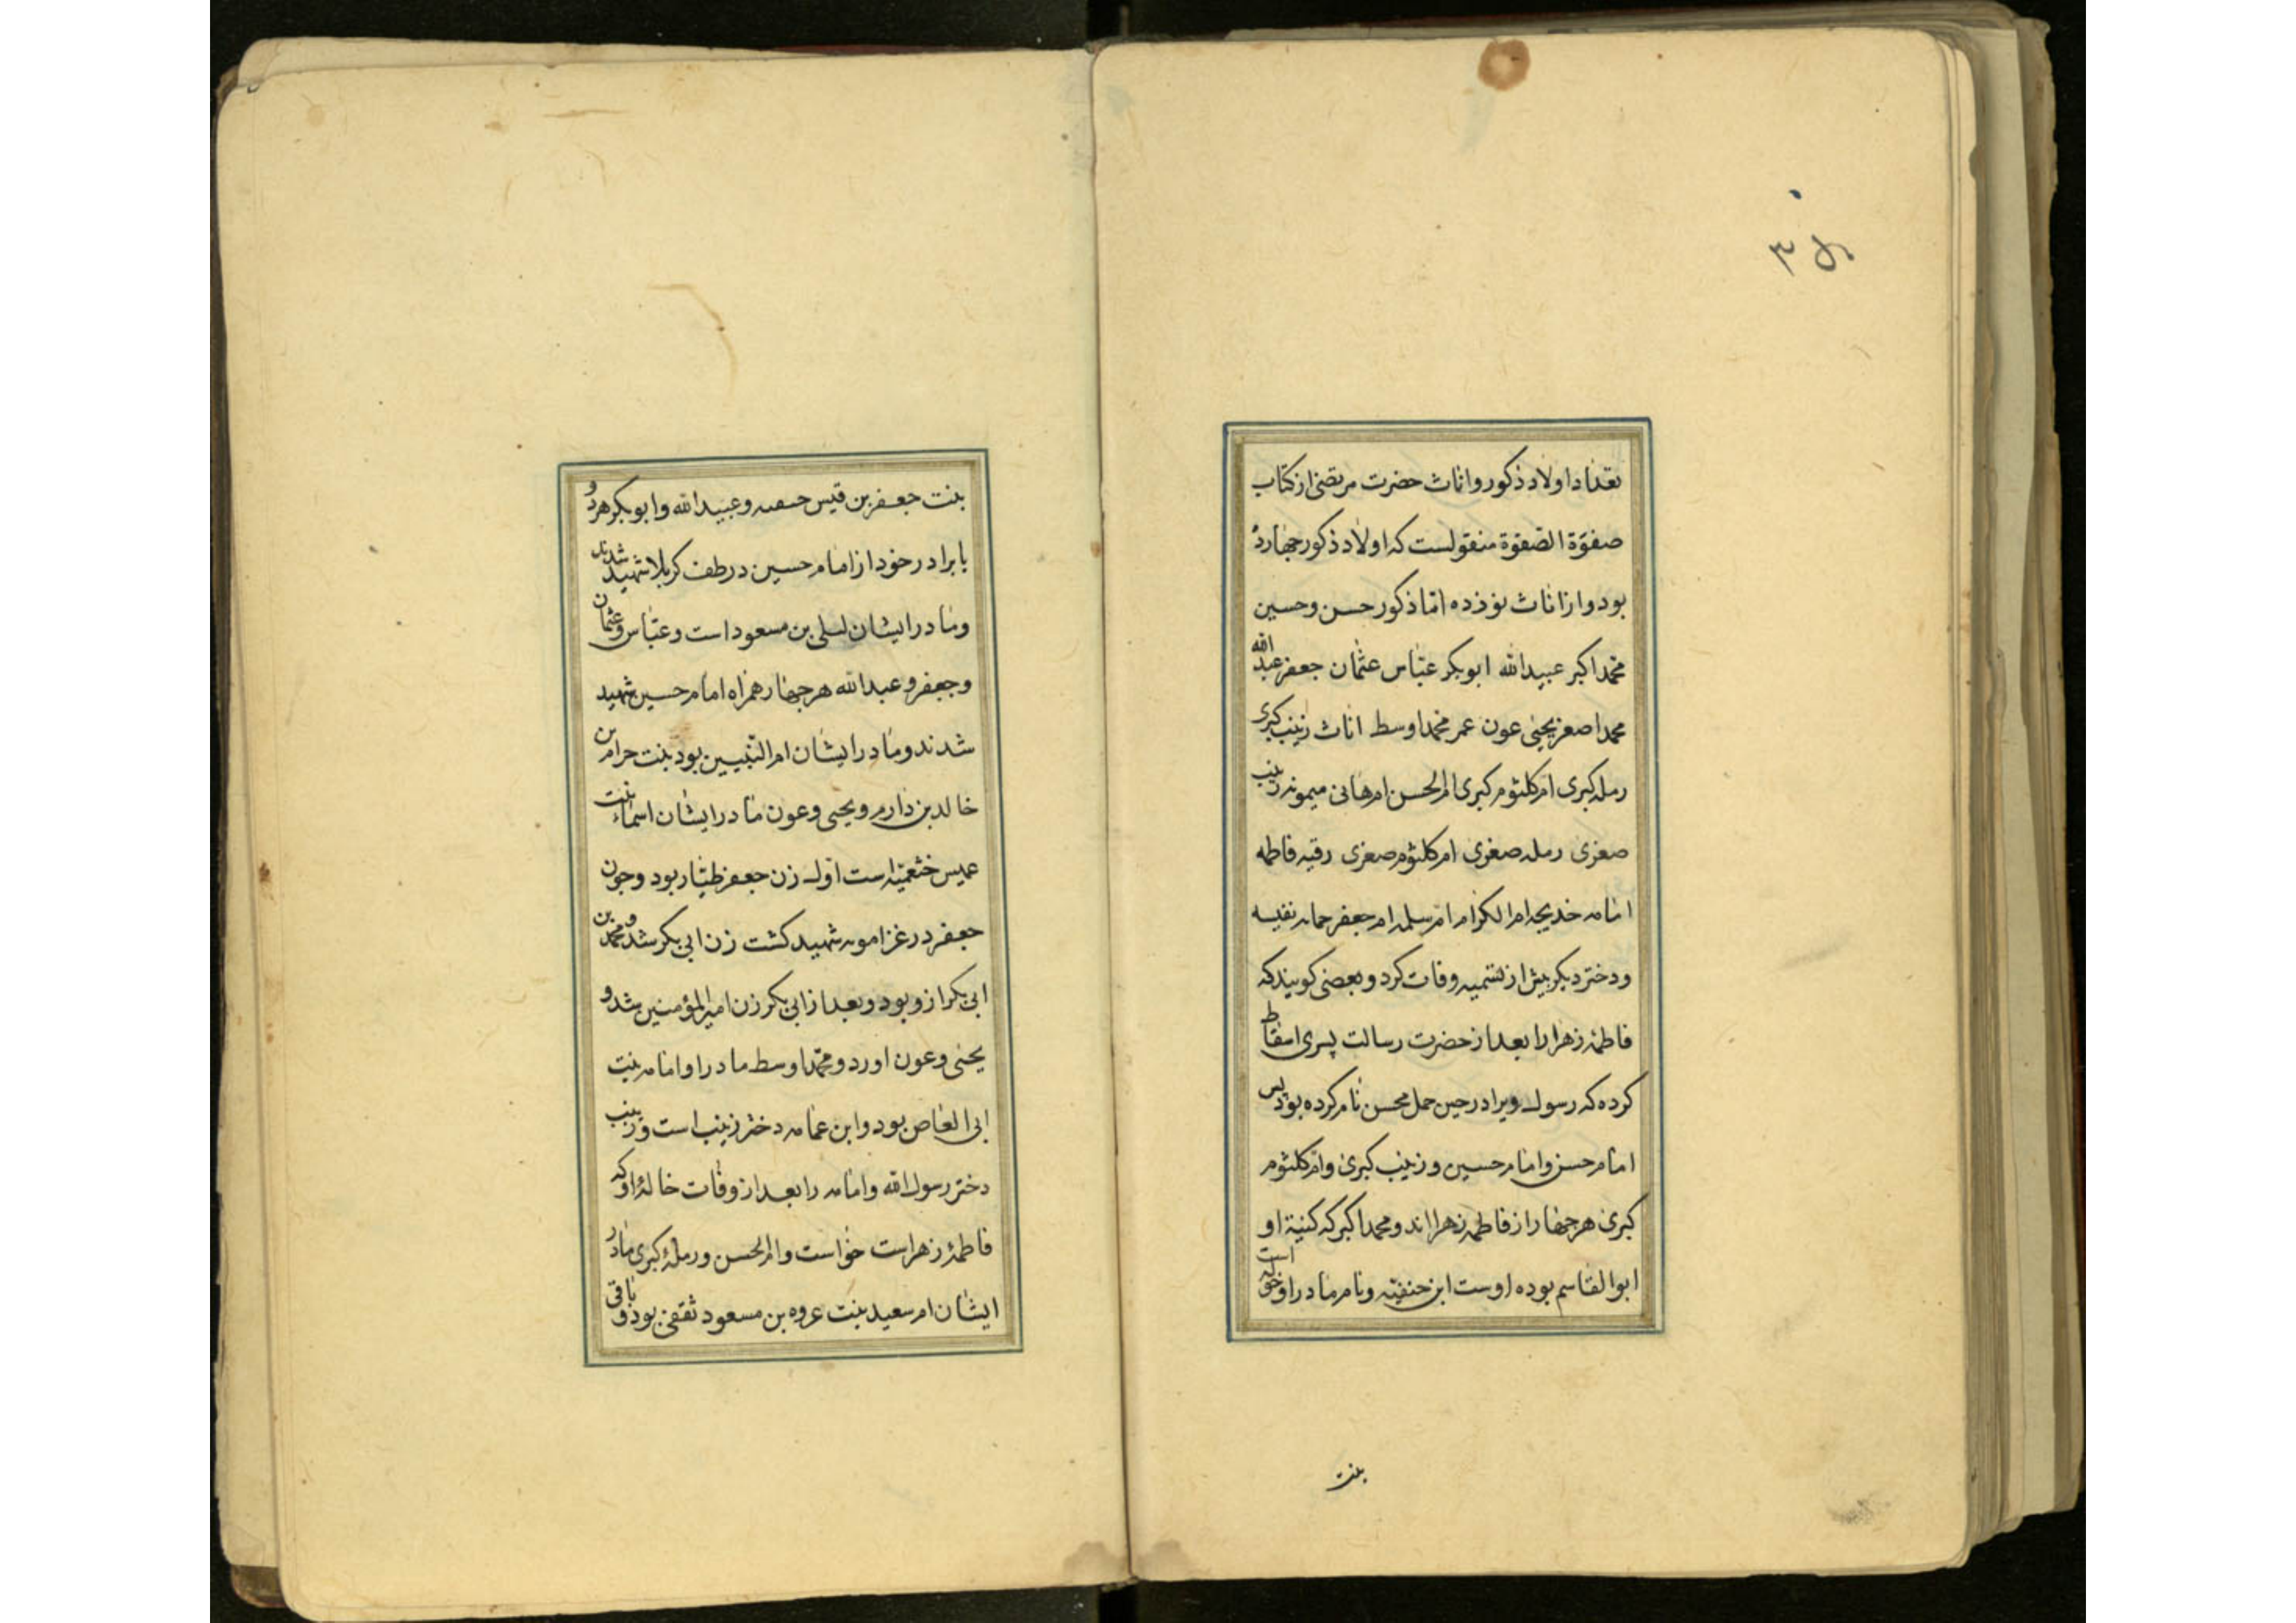 تعداد اولاد ذکور واناث حضرت مرتضی از کتاب
صفوة الصفوة منقولست که اولاد ذکور چهارده
بود و از اناث نوزده امّا ذکور حسن وحسین
محمّد اکبر عبیدالله ابوبکر عبّاس عثمان جعفر عبدالله
محمد اصغر یحیی عون عمر محمد اوسط اناث زینب کبری
رمله کبری ام کلثوم کبری ام الحسن ام هانی میمونه زینب
صغری رمله صغری ام کلثوم صغری رقیه فاطمه
امامه خدیجه ام الکرام ام سلمه ام جعفر جمانه نفیسه
ودختر دیکر پیش از تسمیه وفات کرد و بعضی کویند که
فاطمهٔ زهرا را بعد از حضرت رسالت پسری اسقاط
کرده که رسول ویرا در حین حمل محسن نام کرده بود پس
امام حسن وامام حسین و زینب کبری وام کلثوم
کبری هر چهار از فاطمه زهرا اند ومحمد اکبر که کنیة او
ابوالقاسم بوده اوست ابن حنفیّه ونام مادر او خوله است
بنت
بنت جعفر بن قیس حنفیه وعبیدالله وابوبکر هر دو
با برادر خود از امام حسین در طف کربلا شهید شدند
ومادر ایشان لیلی بن مسعود است وعبّاس وعثمان
وجعفر و عبدالله هر چهار همراه امام حسین شهید
شدند ومادر ایشان ام النبیین بود بنت حرام بن
خالد بن دارم ویحیی وعون مادر ایشان اسماء بنت
عمیس خثعمیّه است اول زن جعفر طیّار بود وچون
جعفر در غزا موته شهید کشت زن ابی بکر شد و محمد بن
ابی بکر از و بود و بعد از ابی بکر زن امیرالمؤمنین شد و
یحیی وعون اورد و محمّد اوسط مادر او امامه بنت
ابی العاص بود و ابن عمامه دختر زینب است و زینب
دختر رسول الله وامامه را بعد از وفات خالهٔ او که
فاطمهٔ زهراست خواست وام الحسن ورملهٔ کبری مادر
ایشان ام سعید بنت عروه بن مسعود ثقفی بود و باقی